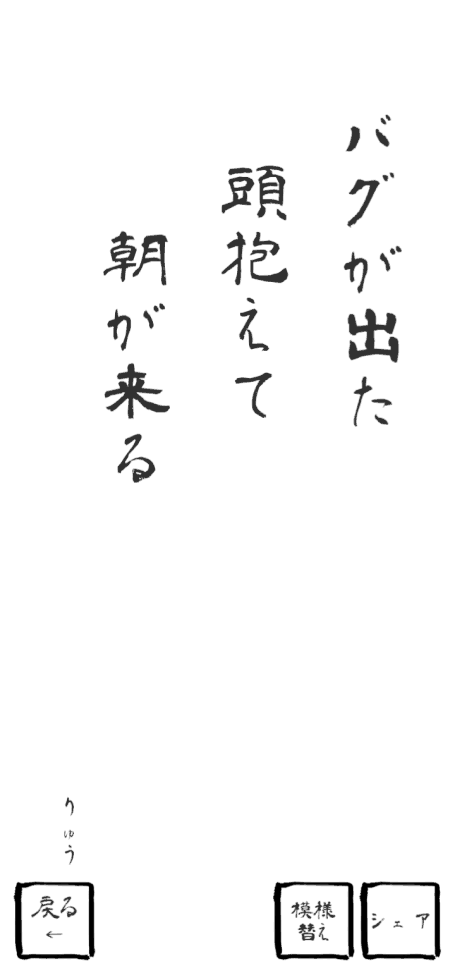 バグが出た
頭抱えて
朝が来る
りゅう
戻る
←
模様
替え
シェア